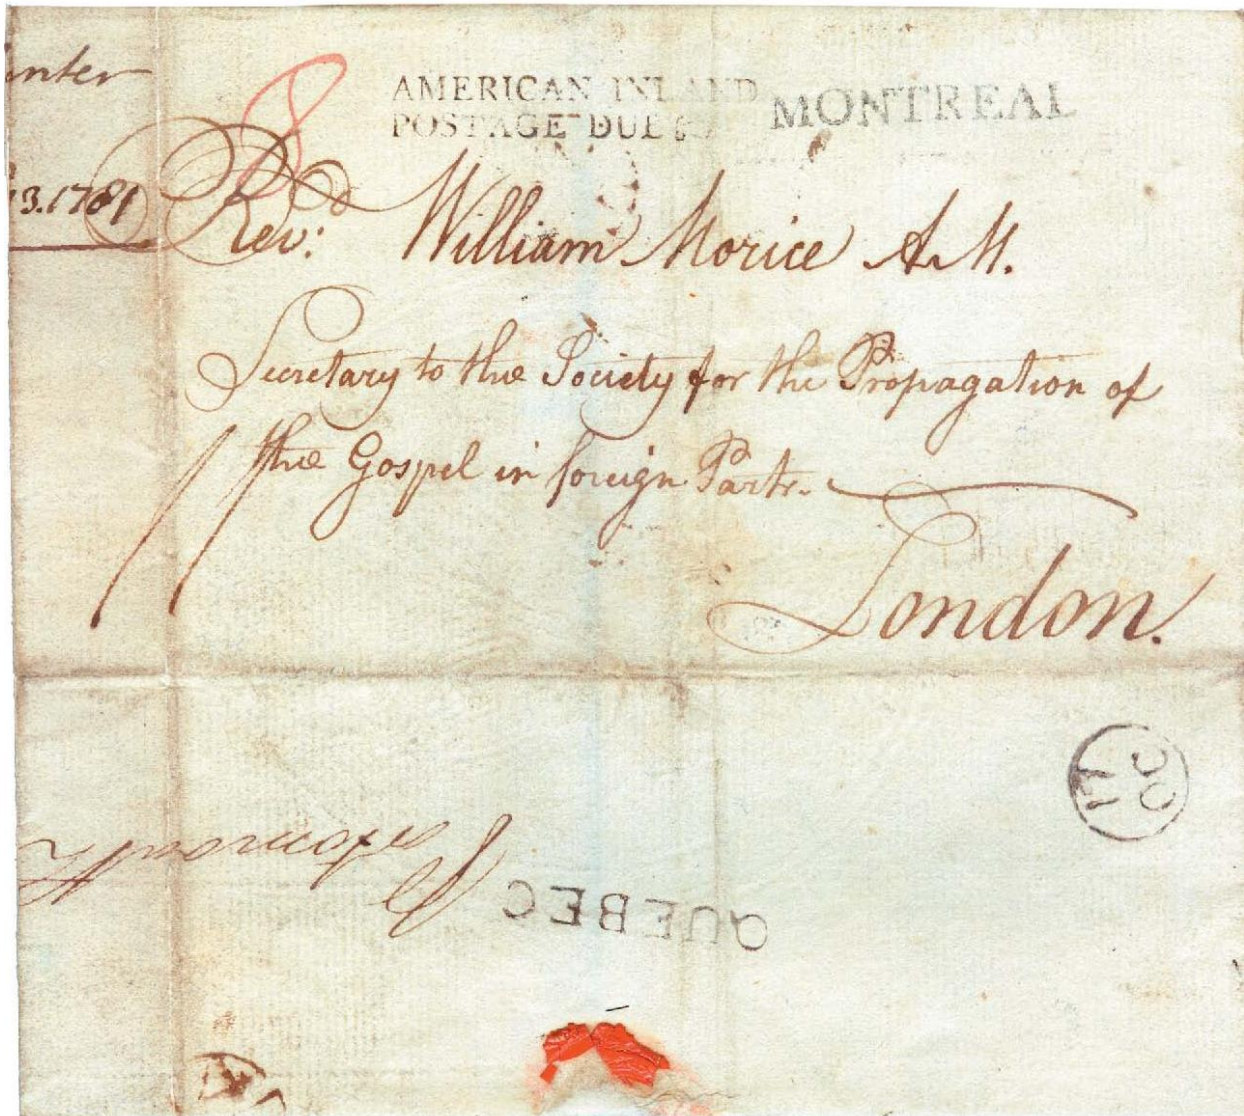 AMERICAN INLAND
POSTAGE DUE
MONTREAL
8
13.1781
Rev.d William Morice A.M.
Secretary to the Society for the Propagation of
the Gospel in foreign Parts.
London.
17
OC
QUEBEC